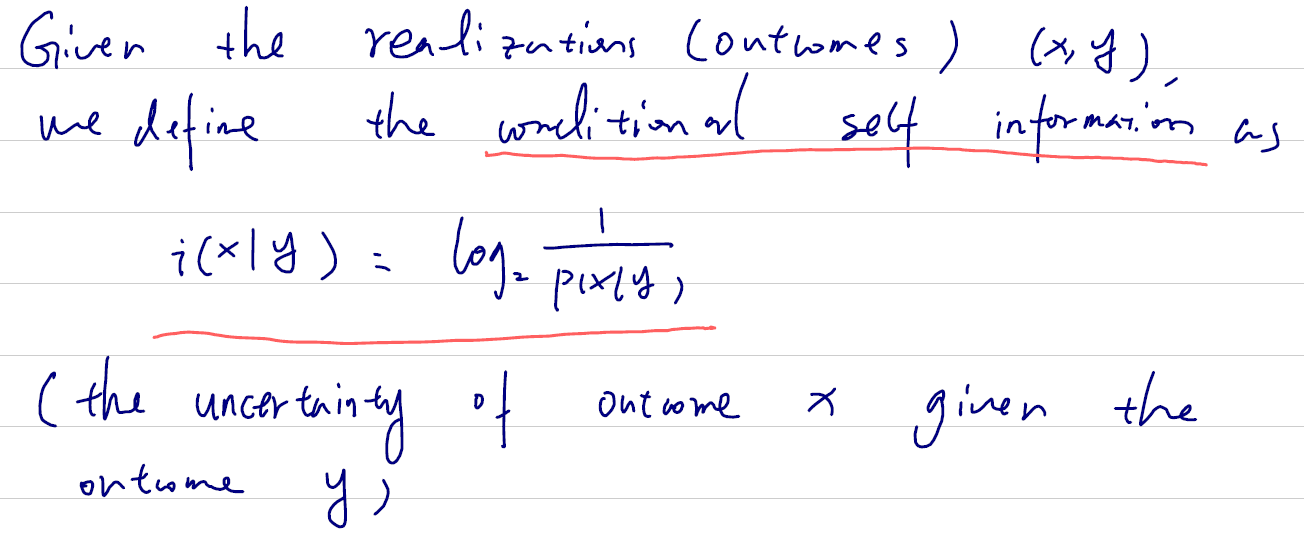 Given the realizations (outcomes) (x, y),
we define the conditional self information as
i(x|y) = log₂ 1/p(x|y)
(the uncertainty of outcome x given the
outcome y)